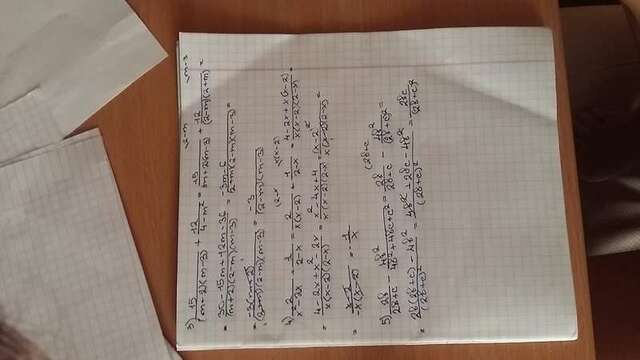 3) 15/((m+2)(m-3)) + 12/(4-m²) = 15/((m+2)(m-3)) + 12/((2-m)(2+m)) =
= (30-15m+12m-36)/((m+2)(2-m)(m-3)) = (-3m-6)/((2+m)(2-m)(m-3)) =
= -3(m+2)/((2+m)(2-m)(m-3)) = -3/((2-m)(m-3))
4) 2/(x²-2x) + 1/(2-x) = 2/(x(x-2)) + 1/(2-x) = (4-2x+x(x-2))/(x(x-2)(2-x)) =
= (4-2x+x²-2x)/(x(x-2)(2-x)) = (x²-4x+4)/(x(x-2)(2-x)) = (x-2)²/(x(x-2)(2-x)) =
= (x-2)/(-x(x-2)) = -1/x
5) 2b/(2b+c) - 4b²/(4b²+4bc+c²) = 2b/(2b+c) - 4b²/(2b+c)² =
= (2b(2b+c)-4b²)/(2b+c)² = (4b²+2bc-4b²)/(2b+c)² = 2bc/(2b+c)²